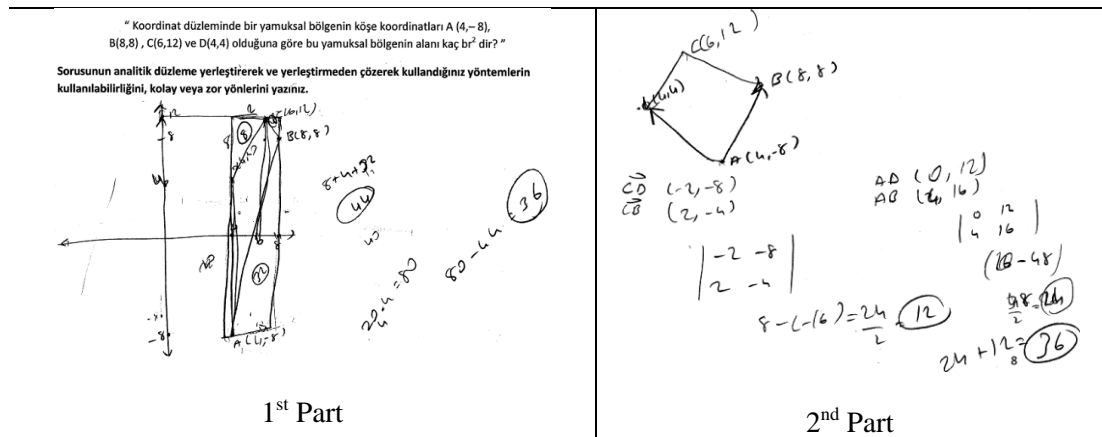 “ Koordinat düzleminde bir yamuksal bölgenin köşe koordinatları A (4,– 8),
B(8,8) , C(6,12) ve D(4,4) olduğuna göre bu yamuksal bölgenin alanı kaç br² dir? ”
Sorusunun analitik düzleme yerleştirerek ve yerleştirmeden çözerek kullandığınız yöntemlerin
kullanılabilirliğini, kolay veya zor yönlerini yazınız.
12
2
(6,12)
8
8
8
B(8,8)
8+4+32
44
32
80-44=36
-8
A(4,-8)
1st Part
C(6,12)
B(8,8)
(4,4)
A(4,-8)
CD (-2,-8)
CB (2,-4)
|-2 -8|
|2 -4|
8-(-16)=24
2
12
AD (0,12)
AB (4,16)
|0 12|
|4 16|
24
2
24+12=36
2nd Part